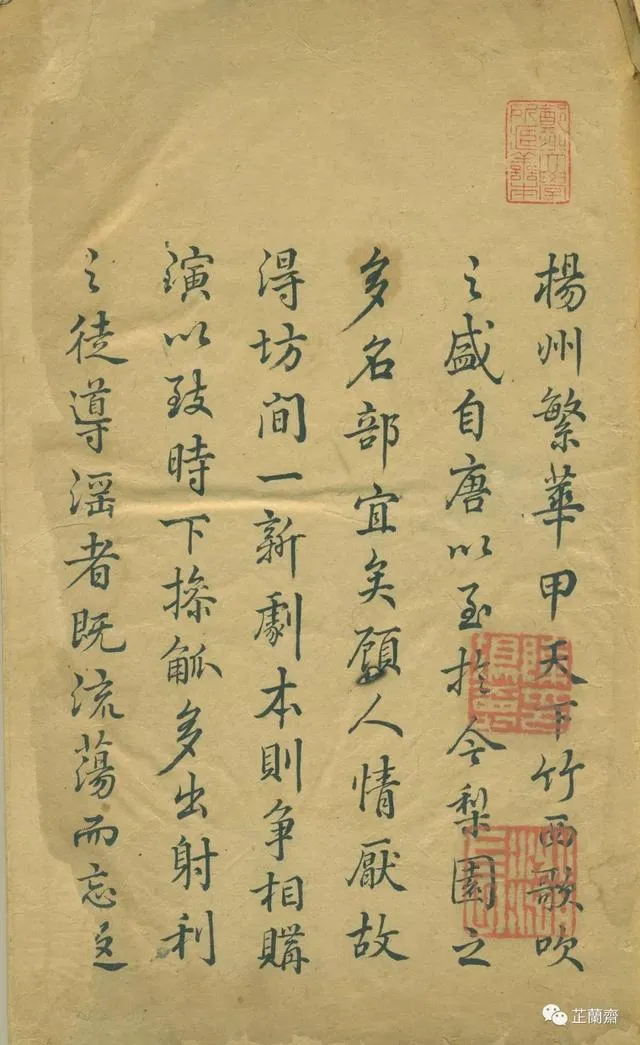 楊州繁華甲天下竹西歌吹
之盛自唐以至於今梨園之
多名部宜矣顧人情厭故
淂坊間一新劇本則争相購
演以致時下操觚多出射利
之徒導淫者既流蕩而忘返
芷蘭齋